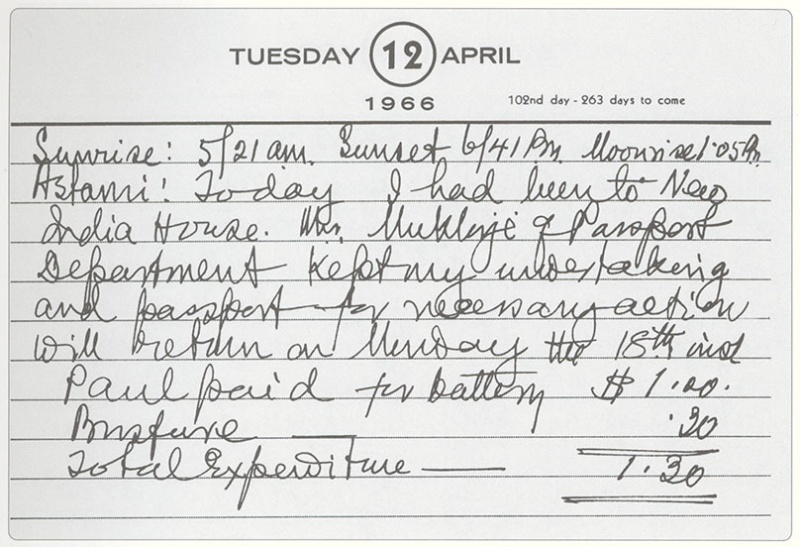 TUESDAY 12 APRIL
1966 102nd day - 263 days to come
Sunrise: 5/21 am. Sunset 6/41 Pm. Moonrise 1.05 Pm.
Astami! Today I had been to New
India House. Mr. Mukherje of Passport
Department kept my undertaking
and passport for necessary action
will return on Monday the 18th inst
Paul paid for battery $ 1.00.
Busfare .30
Total Expenditure — 1.30